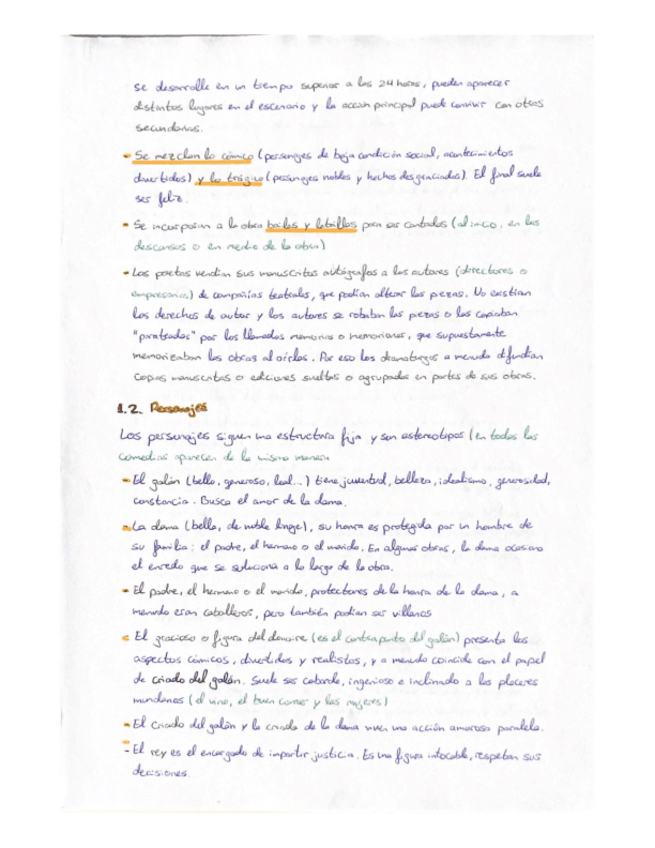 se desarrolle en un tiempo superior a las 24 horas, pueden aparecer
distintos lugares en el escenario y la acción principal puede convivir con otras
secundarias.
- Se mezclan lo cómico (personajes de baja condición social, acontecimientos
divertidos) y lo trágico (personajes nobles y hechos desgraciados). El final suele
ser feliz.
- Se incorporan a la obra bailes y letrillas para ser cantados (al inicio, en los
descansos o en medio de la obra)
- Los poetas vendían sus manuscritos autógrafos a los autores (directores o
empresarios) de compañías teatrales, que podían alterar las piezas. No existían
los derechos de autor y los autores se robaban las piezas o las copiaban
"pirateadas" por los llamados memorias o memoriones, que supuestamente
memorizaban las obras al oírlas. Por eso los dramaturgos a menudo difundían
copias manuscritas o ediciones sueltas o agrupadas en partes de sus obras.
1.2. Personajes
Los personajes siguen una estructura fija y son estereotipos (en todas las
comedias aparecen de la misma manera
- El galán (bello, generoso, leal...) tiene juventud, belleza, idealismo, generosidad,
constancia. Busca el amor de la dama.
- La dama (bella, de noble linaje), su honra es protegida por un hombre de
su familia: el padre, el hermano o el marido. En algunas obras, la dama ocasiona
el enredo que se soluciona a lo largo de la obra.
- El padre, el hermano o el marido, protectores de la honra de la dama, a
menudo eran caballeros, pero también podían ser villanos
- El gracioso o figura del donaire (es el contrapunto del galán) presenta los
aspectos cómicos, divertidos y realistas, y a menudo coincide con el papel
de criado del galán. Suele ser cobarde, ingenioso e inclinado a los placeres
mundanos (el vino, el buen comer y las mujeres)
- El criado del galán y la criada de la dama viven una acción amorosa paralela.
- El rey es el encargado de impartir justicia. Es una figura intocable, respetan sus
decisiones.